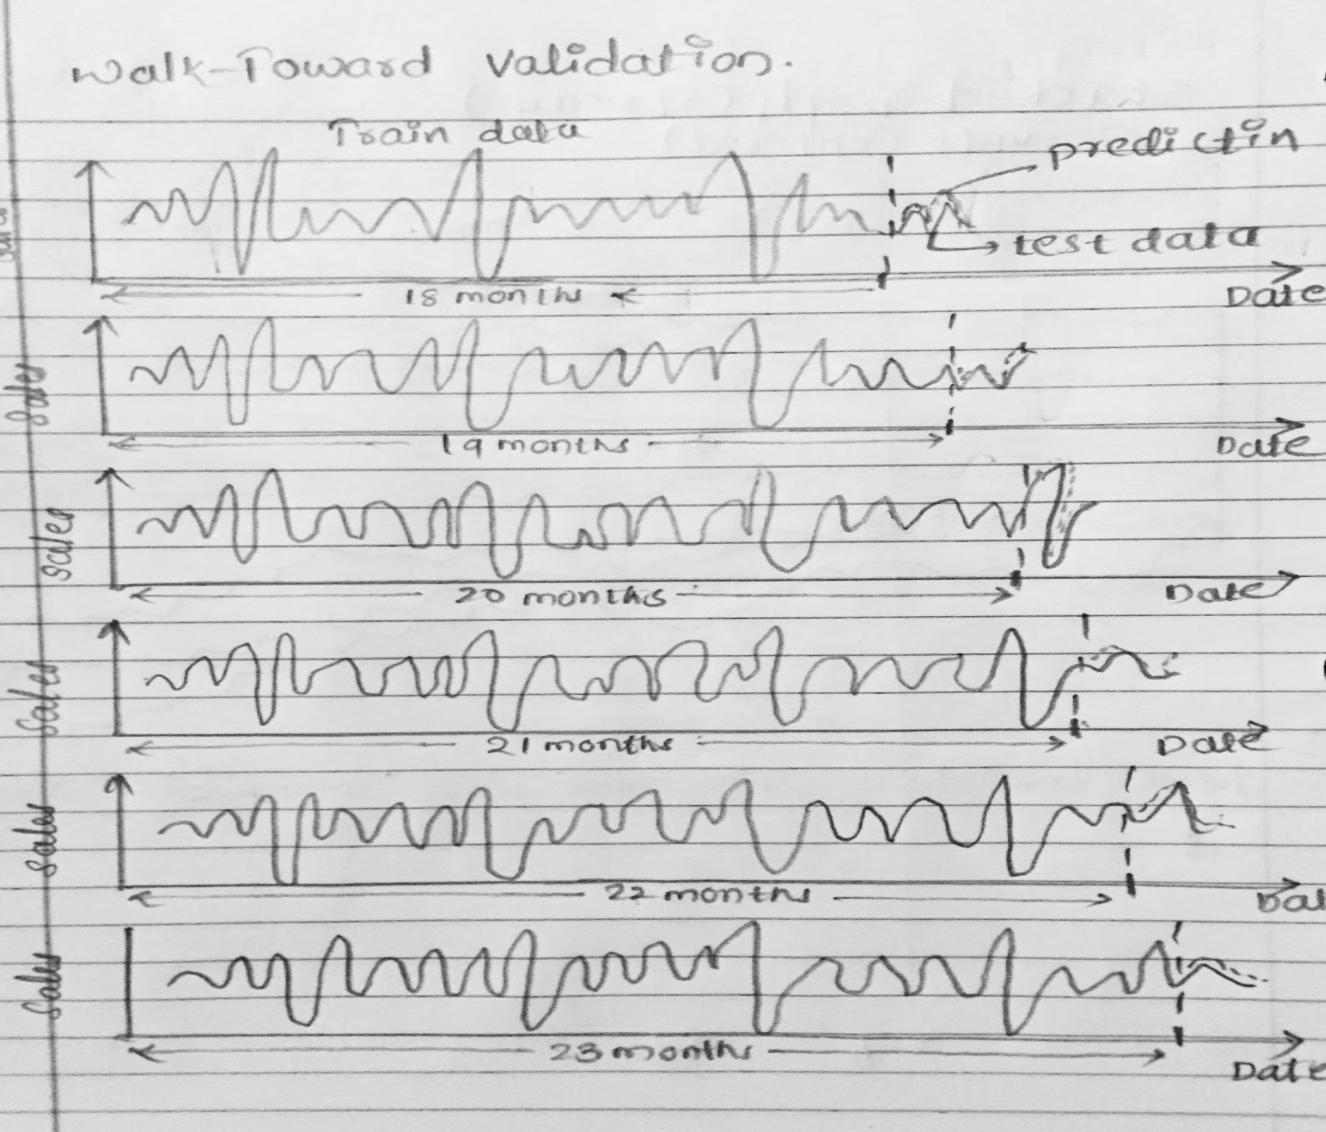 Walk-Toward Validation.
Train data
predictin
test data
18 months
Date
Sales
19 months
Date
Sales
20 months
Date
Sales
21 months
Date
Sales
22 months
Sales
23 months
Date